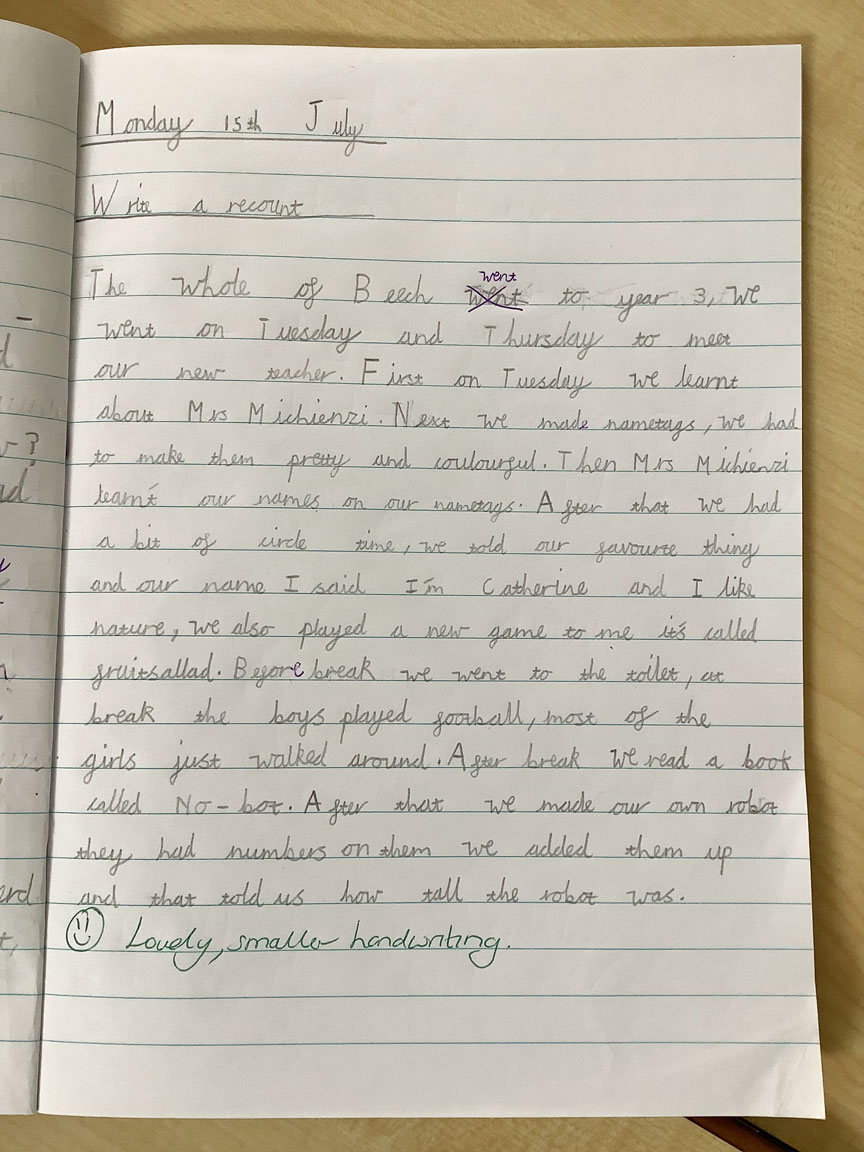 Monday 15th July
Write a recount
went
The whole of Beech went to year 3, we
went on Tuesday and Thursday to meet
our new teacher. First on Tuesday we learnt
about Mrs Michienzi. Next we made nametags, we had
to make them pretty and coulourful. Then Mrs Michienzi
learnt our names on our nametags. After that we had
a bit of circle time, we told our favourte thing
and our name I said I'm Catherine and I like
nature, we also played a new game to me it's called
fruitsallad. Before break we went to the toilet, at
break the boys played football, most of the
girls just walked around. After break we read a book
called No-bot. After that we made our own robot
they had numbers on them we added them up
and that told us how tall the robot was.
Lovely, smaller handwriting.